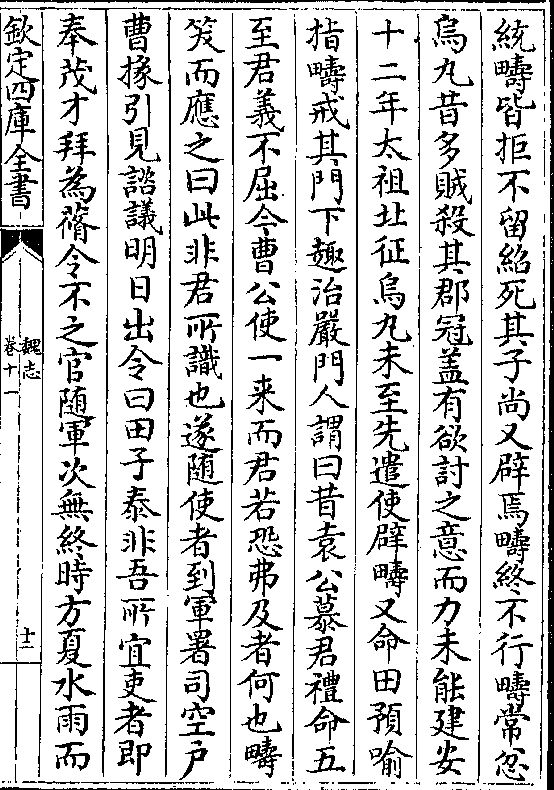 統疇皆拒不留紹死其子尚又辟焉疇終不行疇常忿
烏丸昔多賊殺其郡冠葢有欲討之意而力未能建安
十二年太祖北征烏丸未至先遣使辟疇又命田預喻
指疇戒其門下趣治嚴門人謂曰昔袁公慕君禮命五
至君義不屈今曹公使一来而君若恐弗及者何也疇
笑而應之曰此非君所識也遂随使者到軍署司空户
曹掾引見諮議明日出令曰田子泰非吾所宜吏者即
奉茂才拜為蓨令不之官随軍次無終時方夏水雨而
欽定四庫全書
魏志
卷十一
十二